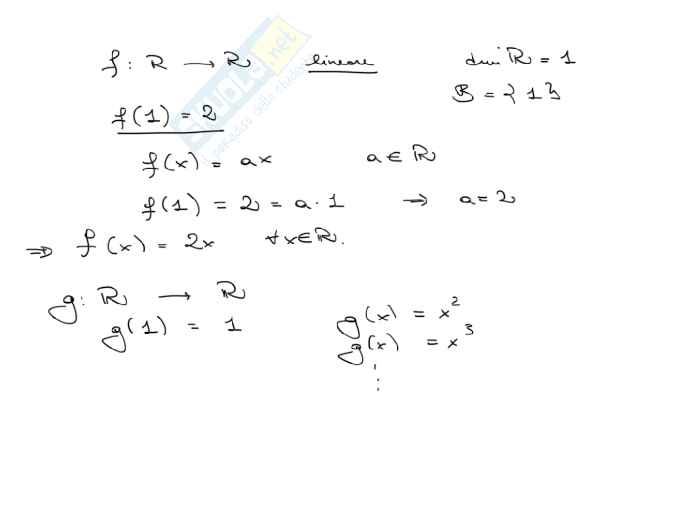 f: ℝ → ℝ lineare dim ℝ = 1
B = {1}
f(1) = 2
f(x) = ax a ∈ ℝ
f(1) = 2 = a · 1 → a = 2
⇒ f(x) = 2x ∀x ∈ ℝ.
g: ℝ → ℝ
g(1) = 1
g(x) = x²
g(x) = x³
⋮